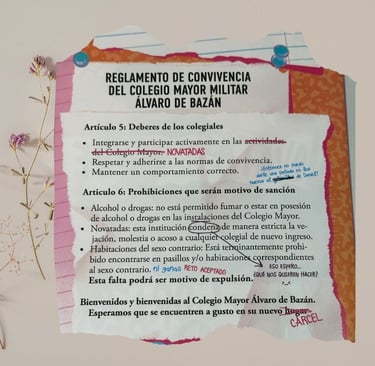 REGLAMENTO DE CONVIVENCIA
DEL COLEGIO MAYOR MILITAR
ÁLVARO DE BAZÁN
Artículo 5: Deberes de los colegiales
• Integrarse y participar activamente en las actividades
del Colegio Mayor. NOVATADAS
• Respetar y adherirse a las normas de convivencia.
• Mantener un comportamiento correcto.
Artículo 6: Prohibiciones que serán motivo de sanción
• Alcohol o drogas: no está permitido fumar o estar en posesión
de alcohol o drogas en las instalaciones del Colegio Mayor.
• Novatadas: esta institución condena de manera estricta la ve-
jación, molestia o acoso a cualquier colegial de nuevo ingreso.
• Habitaciones del sexo contrario: Está terminantemente prohi-
bido encontrarse en pasillos y/o habitaciones correspondientes
al sexo contrario. ni ganas RETO ACEPTADO
ESO ESPERO...
¿QUÉ NOS QUIEREN HACER?
Esta falta podrá ser motivo de expulsión.
Bienvenidos y bienvenidas al Colegio Mayor Álvaro de Bazán.
Esperamos que se encuentren a gusto en su nuevo hogar.
CÁRCEL